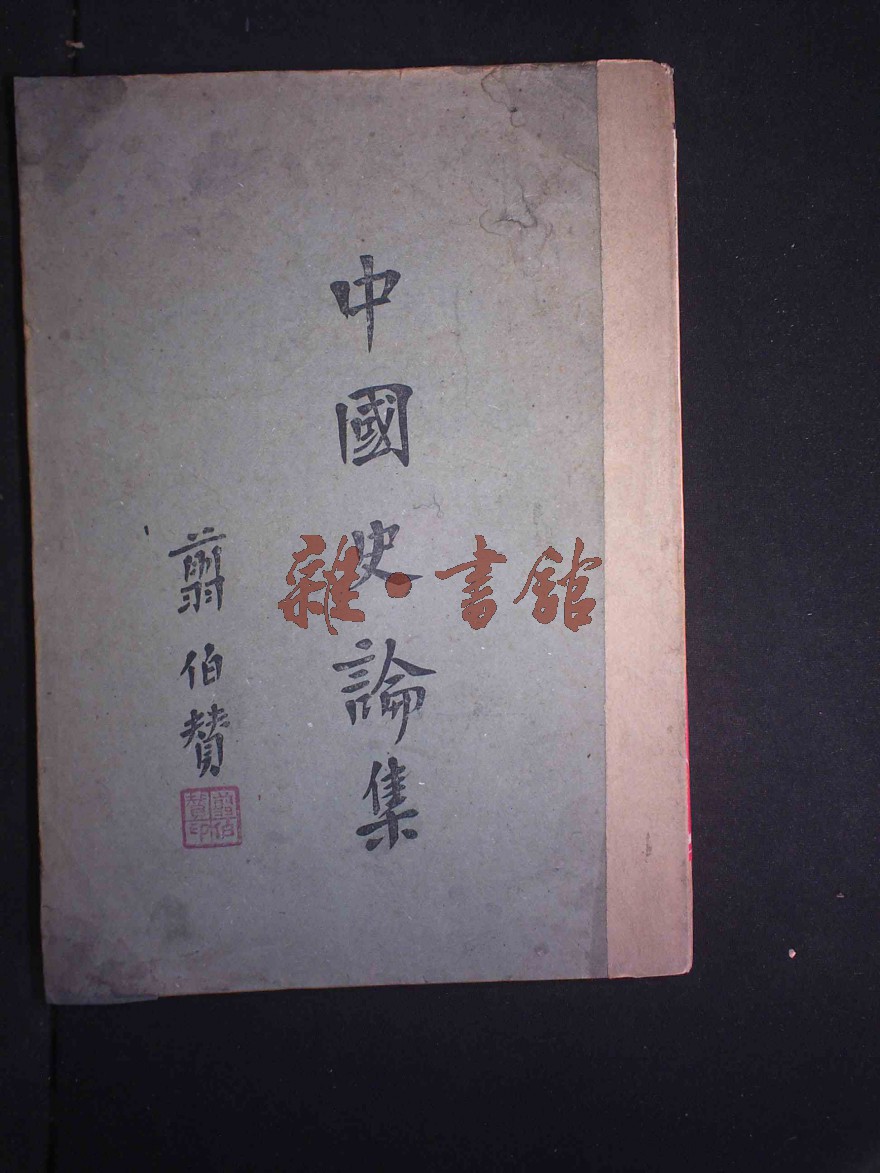 中國史論集
翦伯贊
翦伯贊印
雜·書館